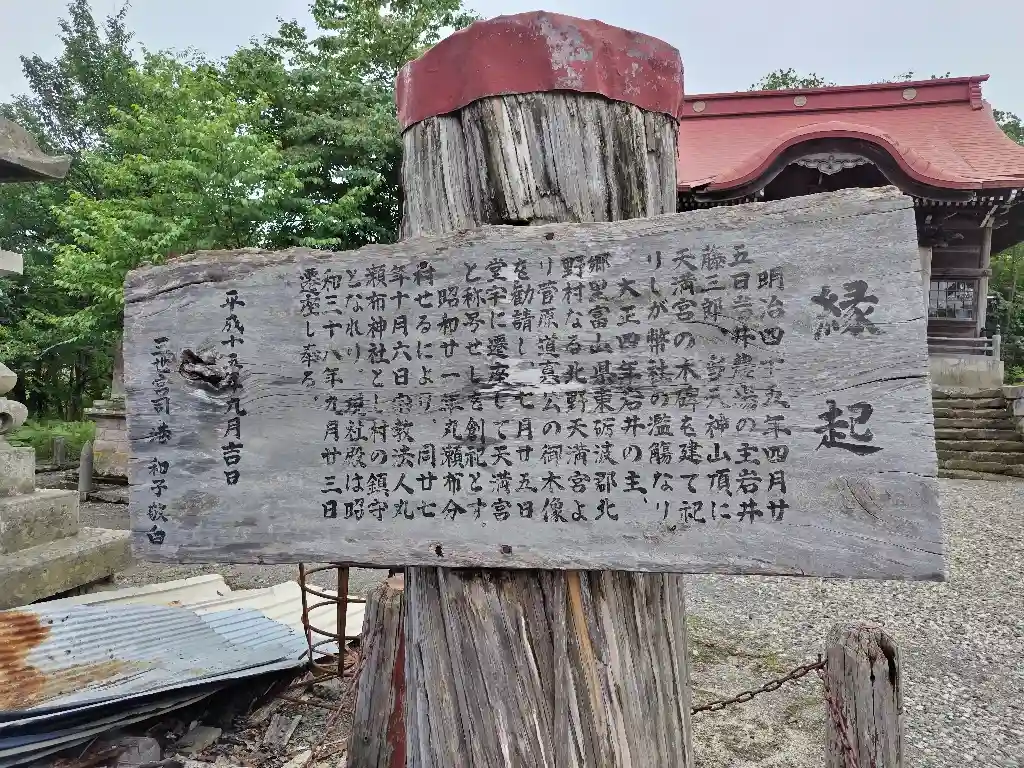 縁起
明治四十五年四月廿
五日岩井農場の主岩井
藤三郎、天神山頂に
天満宮の木碑を建て祀
りしが幣社の濫觴なり
大正四年岩井の主、
郷里富山県東砺波郡北
野村なる北野天満宮よ
り菅原道真公の御木像
を勧請し、七月廿五日
堂宇に遷安して天満宮
と称号せしを創祀とす。
昭和廿一年丸瀬布分
村せるにより、同廿七
年十月六日宗教法人丸
瀬布神社とし村の鎮守
となれり、現社殿は昭
和三十八年九月廿三日
遷座し奉る。
平成十五年九月吉日
三世宮司 法 和子敬白